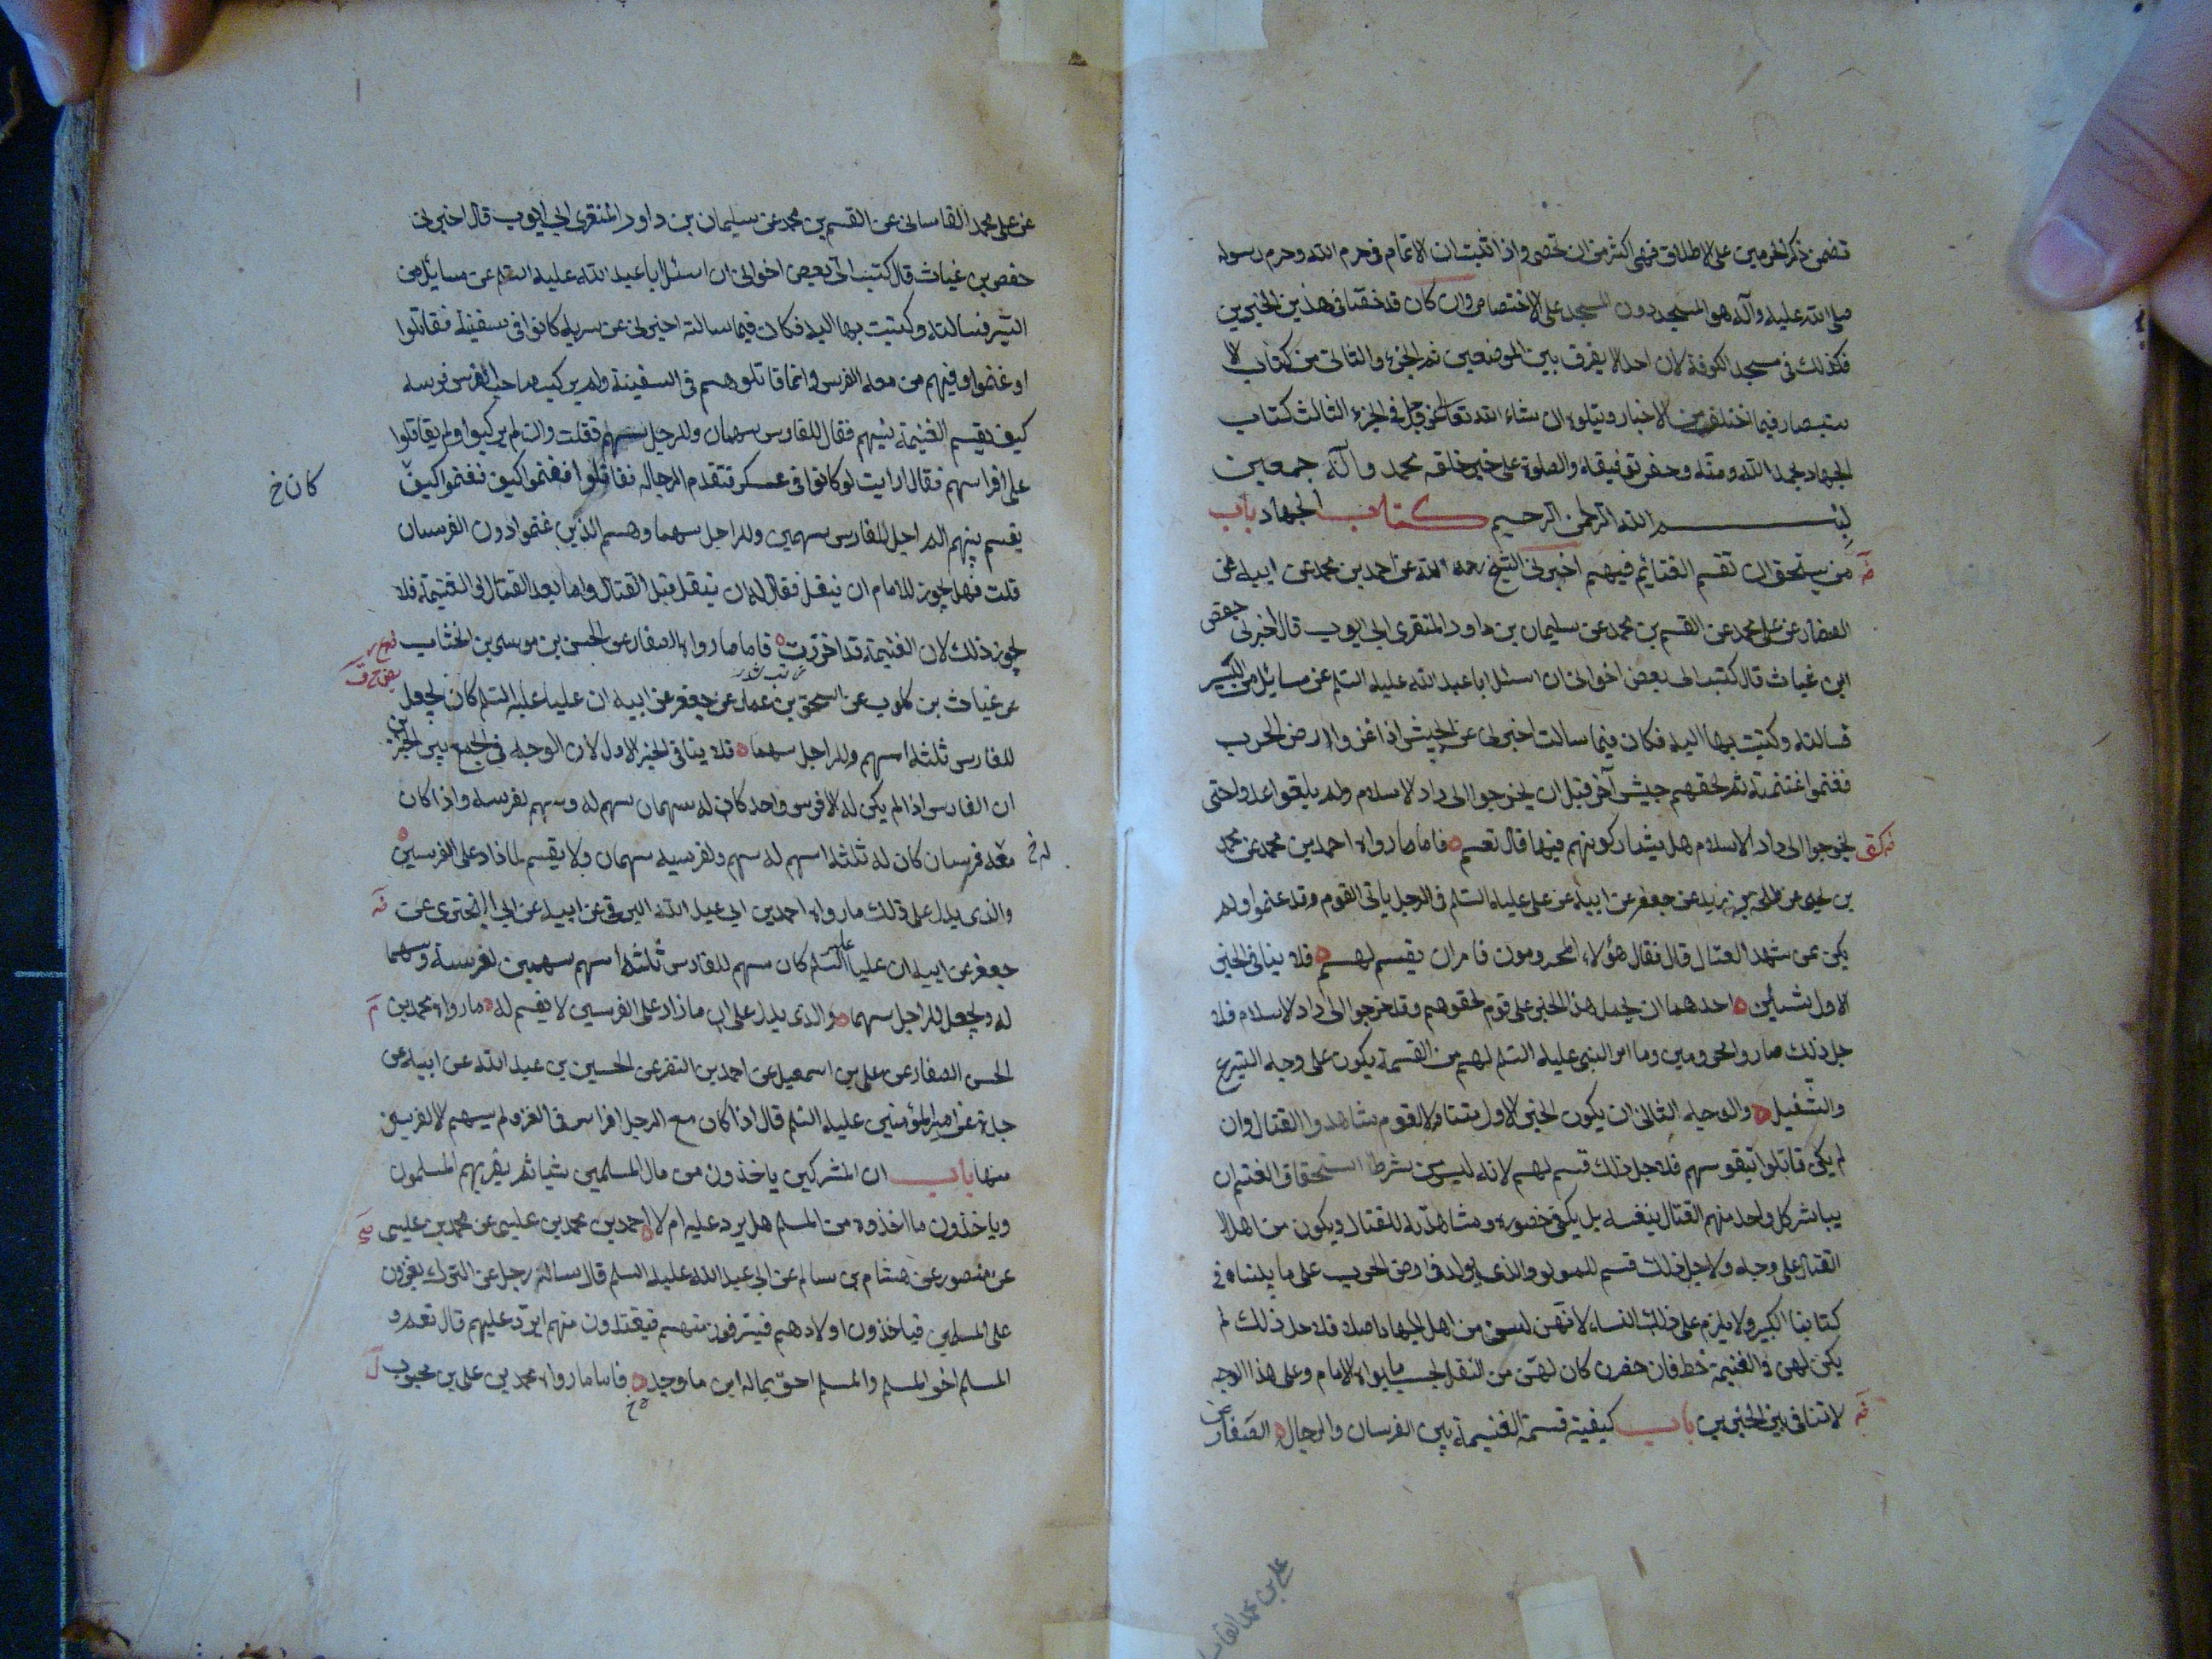 تضمن ذكر الحرمين على الاطلاق فهى اكثر من ان تحصى واذا ثبت ان الاتمام فى حرم الله وحرم رسوله
صلى الله عليه وآله هو المسجد دون المسجد على الاختصاص وان كان قد خصا فى هذين الخبرين
فكذلك فى مسجد الكوفة لان احدا لا يفرق بين الموضعين تم الجزء والثانى من كتاب الا
ستبصار فيما اختلف من الاخبار ويتلوه ان شاء الله تعالى عز وجل فى الجزء الثالث كتاب
الجهاد بحمد الله ومنه وحسن توفيقه والصلوة على خير خلقه محمد وآله جمعين
بسم الله الرحمن الرحيم كتاب الجهاد باب
من يستحق ان تقسم الغنايم فيهم اخبرنى الشيخ رحمه الله عن احمد بن محمد عن ابيه عن
الصفار عن على محمد عن القسم بن محمد عن سليمان بن داود المنقرى ابى ايوب قال اخبرنى حفص
ابن غياث قال كتب الى بعض اخوانى ان اسئل ابا عبد الله عليه السلم عن مسائل من السير
فسالته وكتبت بها اليه فكان فيما سالت اخبرنى عن الجيش اذا غزوا ارض الحرب
فغنموا غنيمة ثم لحقهم جيش آخر قبل ان يخرجوا الى دار الاسلام ولم يلقوا عدوا حتى
يخرجوا الى دار الاسلام هل يشاركونهم فيها قال نعم فاما ما رواه احمد بن محمد عن محمد
بن يحيى عن طلحة بن زيد عن جعفر عن ابيه عن على عليه السلم فى الرجل ياتى القوم وقد غنموا ولم
يكن ممن شهد القتال قال فقال هؤلاء المحرومون فامر ان يقسم لهم فلا ينافى الخبر
الاول شيئين احدهما ان يحمل هذا الخبر على قوم لحقوهم وقد خرجوا الى دار الاسلام فلا
جل ذلك صاروا محرومين وما امر النبى عليه السلم لهم من القسمة يكون على وجه التبرع
والتنفيل والوجه الثانى ان يكون الخبر الاول متناولا لقوم شاهدوا القتال وان
لم يكن قاتلوا بنفوسهم فلاجل ذلك قسم لهم لانه ليس من شرط استحقاق الغنم ان
يباشر كل واحد منهم القتال بنفسه بل يكفى حضوره ومشاهدته للقتال ويكون من اهل
القتال على وجه ولاجل ذلك قسم للمولود الذى يولد فى ارض الحرب على ما بيناه فى
كتابنا الكبير ولا يلزم على ذلك النساء لانهن ليس من اهل الجهاد اصلا فلاجل ذلك لم
يكن لهن فى الغنيمة حظ فان حضرن كان لهن من النفل بحسب ما يراه الامام وعلى هذا الوجه
لا تنافى بين الخبرين باب كيفية قسمة الغنيمة بين الفرسان والرجال الصفار عن
عن على محمد القاسانى عن القسم بن محمد عن سليمان بن داود المنقرى ابى ايوب قال اخبرنى
حفص بن غياث قال كتب الى بعض اخوانى ان اسئل ابا عبد الله عليه السلم عن مسائل من
السير فسالته وكتبت بها اليه فكان فيما سالته اخبرنى عن سرية كانوا فى سفينة فقاتلوا
او غنموا وفيهم من معه الفرس وانما قاتلوهم فى السفينة ولم يركب صاحب الفرس فرسه
كيف يقسم الغنيمة بينهم فقال للفارس سهمان وللرجل سهم فقلت وان لم يركبوا ولم يقاتلوا
على افراسهم فقال ارايت لو كانوا فى عسكر فتقدم الرجاله فقاتلوا فغنموا كيف فغنموا كيف
كان خ
يقسم بينهم الم اجعل للفارس سهمين وللراجل سهما وهم الذين غنموا دون الفرسان
قلت فهل يجوز للامام ان ينفل فقال له ان ينفل قبل القتال واما بعد القتال الى الغنيمة فلا
يجوز ذلك لان الغنيمة قد احرزت فاما ما رواه الصفار عن الحسن بن موسى بن الخشاب
عن غياث بن كلوب عن اسحق بن عمار عن جعفر عن ابيه ان عليا عليه السلم كان يجعل
للفارس ثلثة اسهم وللراجل سهما فلا ينافى الخبر الاول لان الوجه فى الجمع بين الخبرين
ان الفارس اذا لم يكن له الا فرس واحد كان له سهمان سهم له وسهم لفرسه واذا كان
معه فرسان كان له ثلثة اسهم له سهم ولفرسيه سهمان ولا يقسم لما زاد على الفرسين
والذى يدل على ذلك ما رواه احمد بن ابى عبد الله البرقى عن ابيه عن ابى البخترى عن
جعفر عن ابيه ان عليا عليه السلم كان سهم للفارس ثلثة اسهم سهمين لفرسه وسهما
له ويجعل للراجل سهما والذى يدل على ان ما زاد على الفرسين لا يقسم له ما رواه محمد بن
الحسن الصفار عن على بن اسمعيل عن احمد بن النضر عن الحسين بن عبد الله عن ابيه عن
جده عن امير المؤمنين عليه السلم قال اذا كان مع الرجل افراس فى الغزو لم يسهم الا لفرسين
منها باب ان المشركين ياخذون من مال المسلمين شيئا ثم يظفر بهم المسلمون
وياخذون ما اخذوه من المسلم هل يرد عليه ام لا احمد بن محمد بن عيسى عن محمد بن عيسى
عن منصور عن هشام بن سالم عن ابى عبد الله عليه السلم قال ساله رجل عن الترك يغزون
على المسلمين فياخذون اولادهم فيسترقون منهم فيقتلون منهم ايرد عليهم قال نعم و
المسلم اخو المسلم والمسلم احق بماله اين ما وجده فاما ما رواه محمد بن على بن محبوب